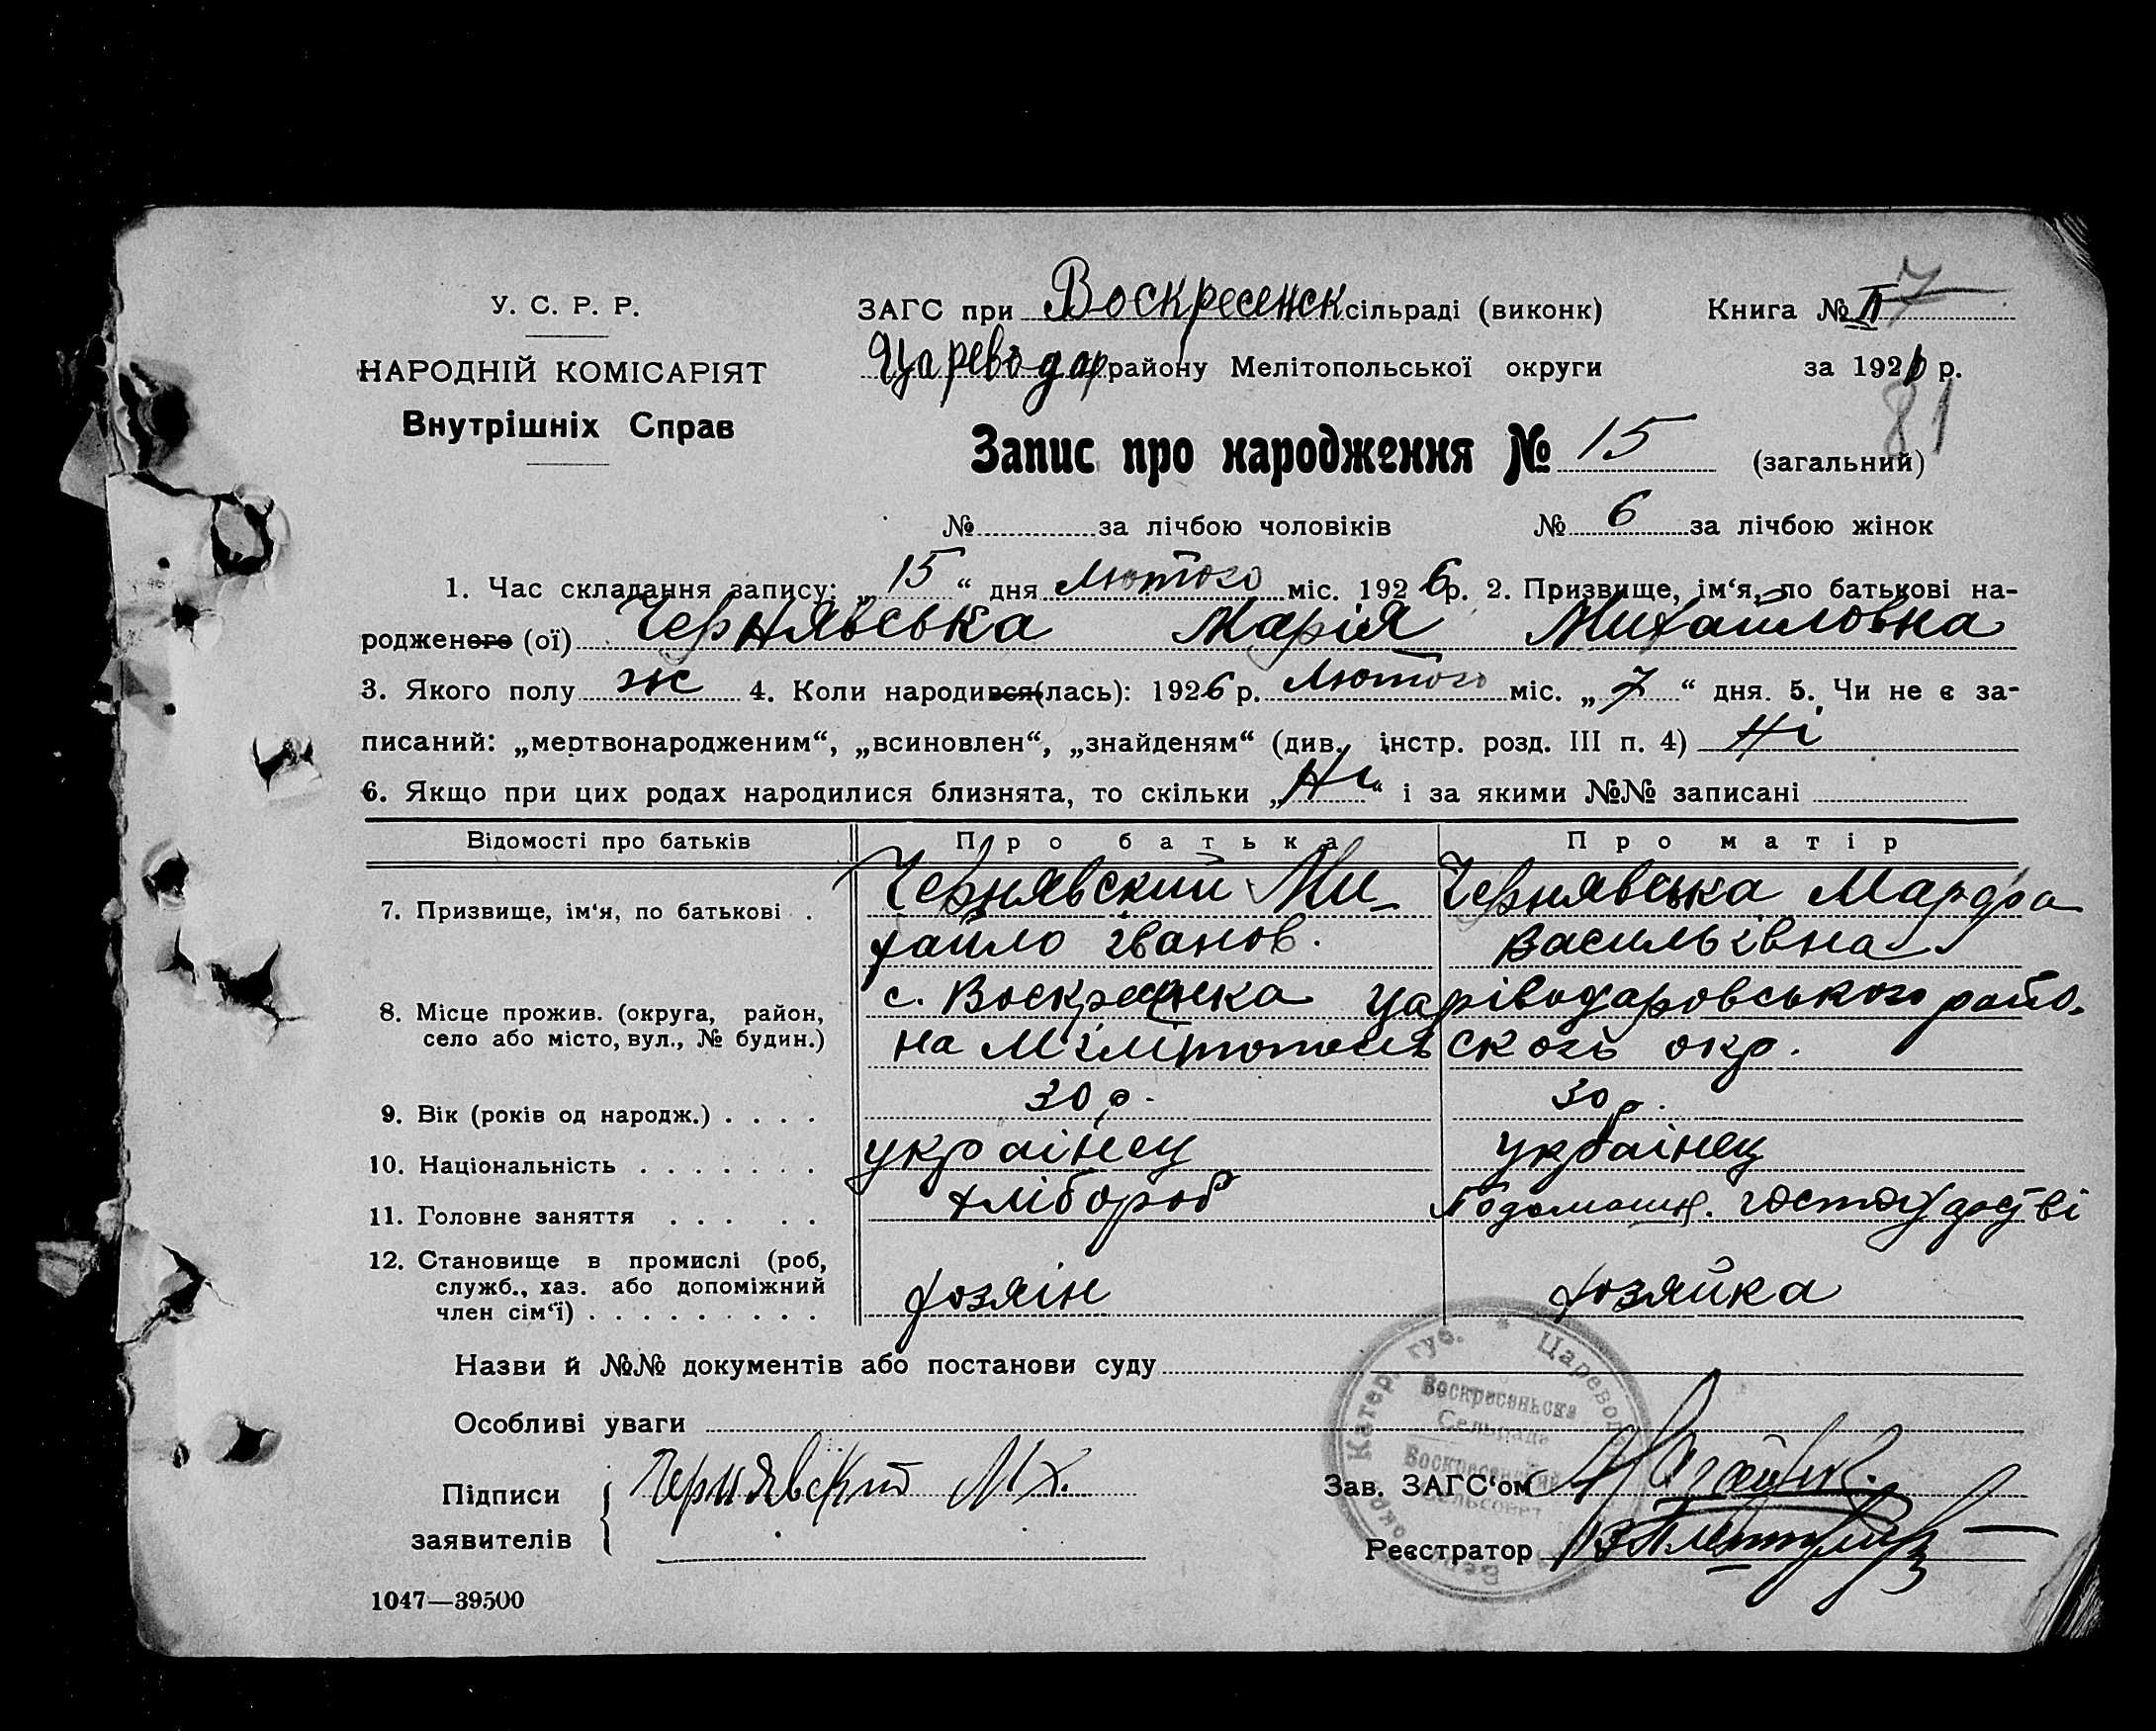 У. С. Р. Р.
НАРОДНІЙ КОМІСАРІЯТ
Внутрішніх Справ
ЗАГС при Воскресенск сільраді (виконк)
Цареводар району Мелітопольської округи
Книга № II 7
за 1926 р.
81
Запис про народження № 15 (загальний)
№ за лічбою чоловіків № 6 за лічбою жінок
1. Час складання запису: „15“ дня Лютого міс. 1926 р. 2. Призвище, ім‘я, по батькові на-
родженого (ої) Чернявська Марія Михайловна
3. Якого полу ж 4. Коли народився(лась): 1926 р. Лютого міс. „7“ дня. 5. Чи не є за-
писаний: „мертвонародженим“, „всиновлен“, „знайденям“ (див. інстр. розд. III п. 4) Ні
6. Якщо при цих родах народилися близнята, то скільки „Ні“ і за якими №№ записані
Відомості про батьків Про батька Про матір
7. Призвище, ім‘я, по батькові . Чернявский Ми- Чернявська Марфа
хайло Іванов. Васильівна
8. Місце прожив. (округа, район, с. Воскресенка Царіводаровського райо-
село або місто, вул., № будин.) на Мілітопольского окр.
9. Вік (років од народж.) . . . . 30 р. 30 р.
10. Національність . . . . . . . украінец украінец
11. Головне заняття . . . . . хлібороб По домашн.
12. Становище в промислі (роб,
служб., хаз. або допоміжний
член сім‘ї) . . . . . . . . . хозяін хозяйка
Назви й №№ документів або постанови суду
Особливі уваги
Підписи
заявителів
Чернявский Мх.
Зав. ЗАГС‘ом
Реєстратор
Катер. губ. * Царевод
Воскресеньска
Сельрада
Воскресенский
Сельсовет
1047—39500